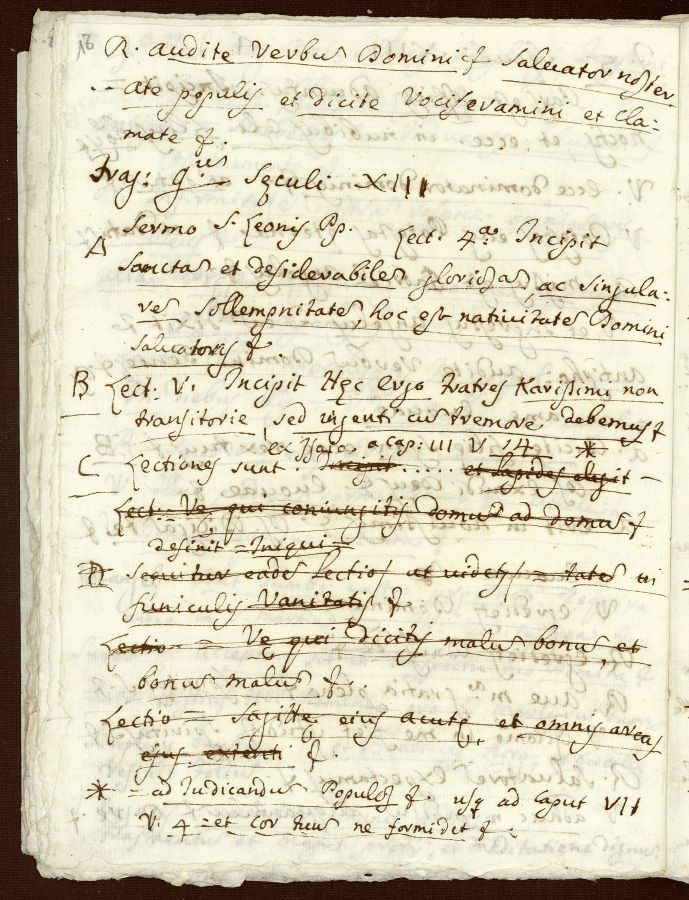 13
R. audite Verbum Domini &. Salvator noster
ate populis et dicite Vociferamini et Cla=
mate &.
Frag: Sęculi XIII
A Sermo S. Leonis Pp. Lect. 4.ª Incipit
Sanctas et desiderabiles gloriosas, ac singula=
res sollempnitates, hoc est nativitates Domini
Salvatoris &
B Lect: V. Incipit Hęc ergo fratres Karissimi non
transitorie, sed ingenti cum tremore debemus &
ex Isaia a Cap: III V 14 *
C Lectiones sunt: Incipit ..... et lapides elegit -
Lect: Ve qui coniungitis domum ad domum &
desinit = Iniqui =
D Sequitur eadem Lectio ut videtur = tatem in
funiculis Vanitatis &.
Lectio = Vę qui dicitis malum bonum, et
bonum malum &.
Lectio = Sagittę eius acutę et omnis arcus
ejus extenti &.
* = ad Iudicandum Populos &. usq ad Caput VII
V. 4 = et cor tuum ne formidet &.